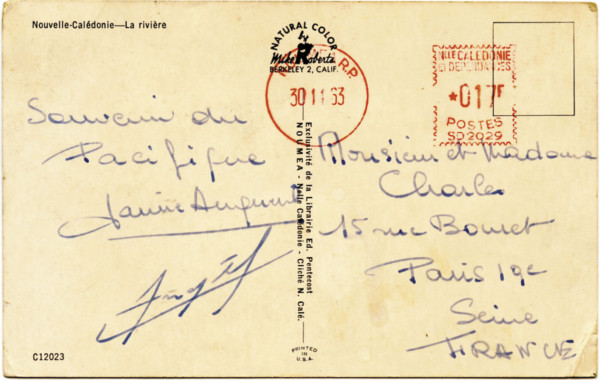 Nouvelle-Calédonie—La rivière
NATURAL COLOR
by
Mike Roberts
BERKELEY 2, CALIF.
R.P
30 11 63
NLLE CALEDONIE
ET DEPENDANCES
*017F
POSTES
SD2029
Souvenir du
Pacifique
Exclusivité de la Librairie Ed. Pentecost
NOUMEA - Nelle Calédonie - Cliché N. Calé.
Monsieur et Madame
Charles
15 rue
Paris 19e
Seine
FRANCE
C12023
PRINTED
IN
U.S.A.